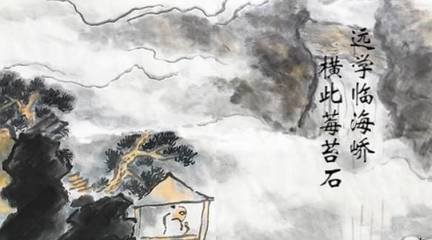 远学临海峤
横此莓苔石